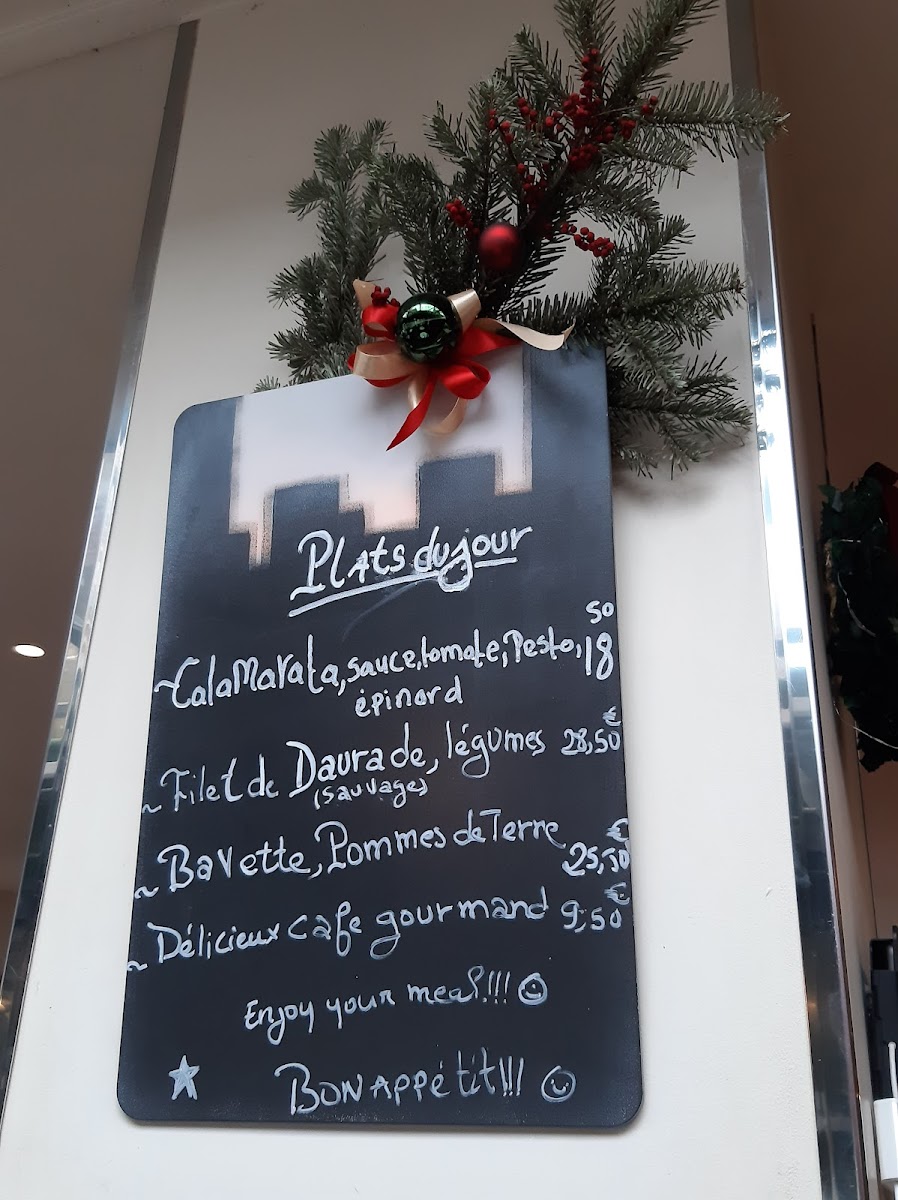 Plats du jour
~Calamarata, sauce, tomate, Pesto, 18 50
épinard
~Filet de Daurade, légumes 28,50 €
(sauvage)
~Bavette, Pommes de Terre 25,50 €
~Délicieux cafe gourmand 9,50 €
Enjoy your meal!!!
Bon appétit!!!